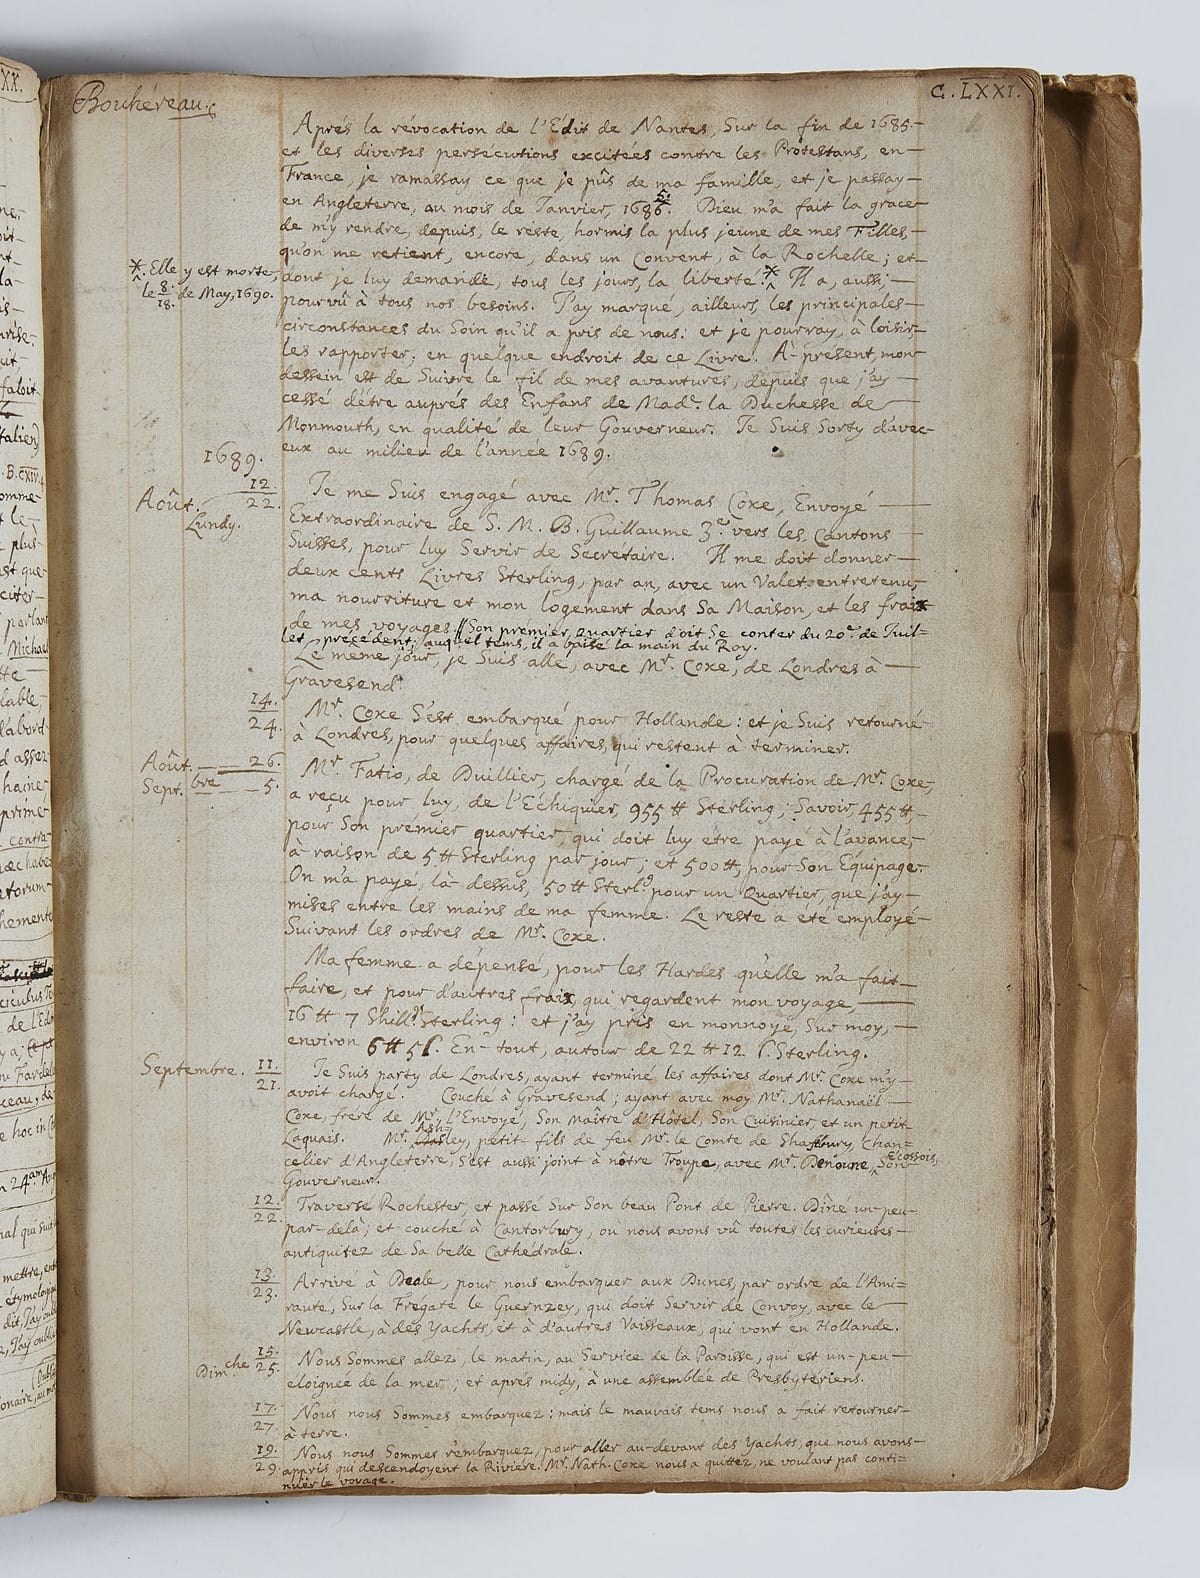 Bouhéreau.
C. LXXI.
Aprés la révocation de l'Edit de Nantes, Sur la fin de 1685.
et les diverses persécutions excitées contre les Protestans, en
France, je ramassay ce que je pûs de ma famille, et je passay
en Angleterre, au mois de Janvier, 168 5/6. Dieu m'a fait la grace
de m'y rendre, depuis, le reste, hormis la plus jeune de mes Filles,
qu'on me retient, encore, dans un Convent, à la Rochelle; et
*. Elle y est morte,
le 8./18. de May, 1690.
dont je luy demande, tous les jours, la liberté.* Il a, aussi,
pourvû à tous nos besoins. J'ay marqué, ailleurs, les principales
circonstances du Soin qu'il a pris de nous: et je pourray, à loisir,
les rapporter, en quelque endroit de ce Livre. À-présent, mon
dessein est de Suivre le fil de mes avantures, depuis que j'ay
cessé d'être auprés des Enfans de Made. la Duchesse de
Monmouth, en qualité de leur Gouverneur. Je Suis Sorty d'avec
eux au milieu de l'année 1689.
1689.
Août. 12./22.
Lundy.
Je me Suis engagé avec Mr. Thomas Coxe, Envoyé
Extraordinaire de S. M. B. Guillaume 3e. vers les Cantons
Suisses, pour luy Servir de Secretaire. Il me doit donner
deux cents Livres Sterling, par an, avec un Valet entretenu,
ma nourriture et mon logement dans Sa Maison, et les fraix
de mes voyages. // Son prémier quartier doit Se conter du 20e. de Juil=
let, précédent; auquel tems, il a baisé la main du Roy.
Le même jour, je Suis allé, avec Mr. Coxe, de Londres à
Gravesend.
14./24.
Mr. Coxe S'est embarqué pour Hollande: et je Suis retourné
à Londres, pour quelques affaires, qui restent à terminer.
Août. 26.
Sept.bre 5.
Mr. Fatio, de Duillier, chargé de la Procuration de Mr. Coxe,
a reçu pour luy, de l'Echiquier, 955 tt Sterling; Savoir, 455 tt,
pour Son prémier quartier, qui doit luy être payé à l'avance,
à raison de 5 tt Sterling par jour; et 500 tt, pour Son Equipage.
On m'a payé, là-dessus, 50 tt Sterl.g pour un Quartier, que j'ay
mises entre les mains de ma femme. Le reste a été employé
Suivant les ordres de Mr. Coxe.
Ma femme a dépensé, pour les Hardes qu'elle m'a fait
faire, et pour d'autres fraix, qui regardent mon voyage,
16 tt 7 Shill.s Sterling: et j'ay pris en monnoye, Sur moy,
environ 6 tt 5 ſ. En-tout, autour de 22 tt 12 ſ. Sterling.
Septembre. 11./21.
Je Suis party de Londres, ayant terminé les affaires dont Mr. Coxe m'y
avoit chargé. Couché à Gravesend; ayant avec moy Mr. Nathanaël
Coxe, frere de Mr. l'Envoyé, Son Maître d'Hôtel, Son Cuisinier, et un petit
Laquais. Mr. Ashley, petit-fils de feu Mr. le Comte de Shaftbury, Chan=
celier d'Angleterre, S'est aussi joint à nôtre Troupe, avec Mr. Denoune, Ecossois, Son
Gouverneur.
12./22.
Traversé Rochester, et passé Sur Son beau Pont de Pierre. Dîné un-peu
par-delà; et couché à Cantorbury, où nous avons vû toutes les curieuses
antiquitez de Sa belle Cathédrale.
13./23.
Arrivé à Deale, pour nous embarquer aux Dunes, par ordre de l'Ami=
rauté, Sur la Frégate le Guernzey, qui doit Servir de Convoy, avec le
Newcastle, à des Yachts, et à d'autres Vaisseaux, qui vont en Hollande.
Dim.che 15./25.
Nous Sommes allez, le matin, au Service de la Paroisse, qui est un-peu
éloignée de la mer; et aprés midy, à une assemblée de Presbytériens.
17./27.
Nous nous Sommes embarquez: mais le mauvais tems nous a fait retourner
à terre.
19./29.
Nous nous Sommes r'embarquez, pour aller au-devant des Yachts, que nous avons
appris qui descendoyent la Riviére. Mr. Nath. Coxe nous a quittez, ne voulant pas conti=
nuër le voyage.